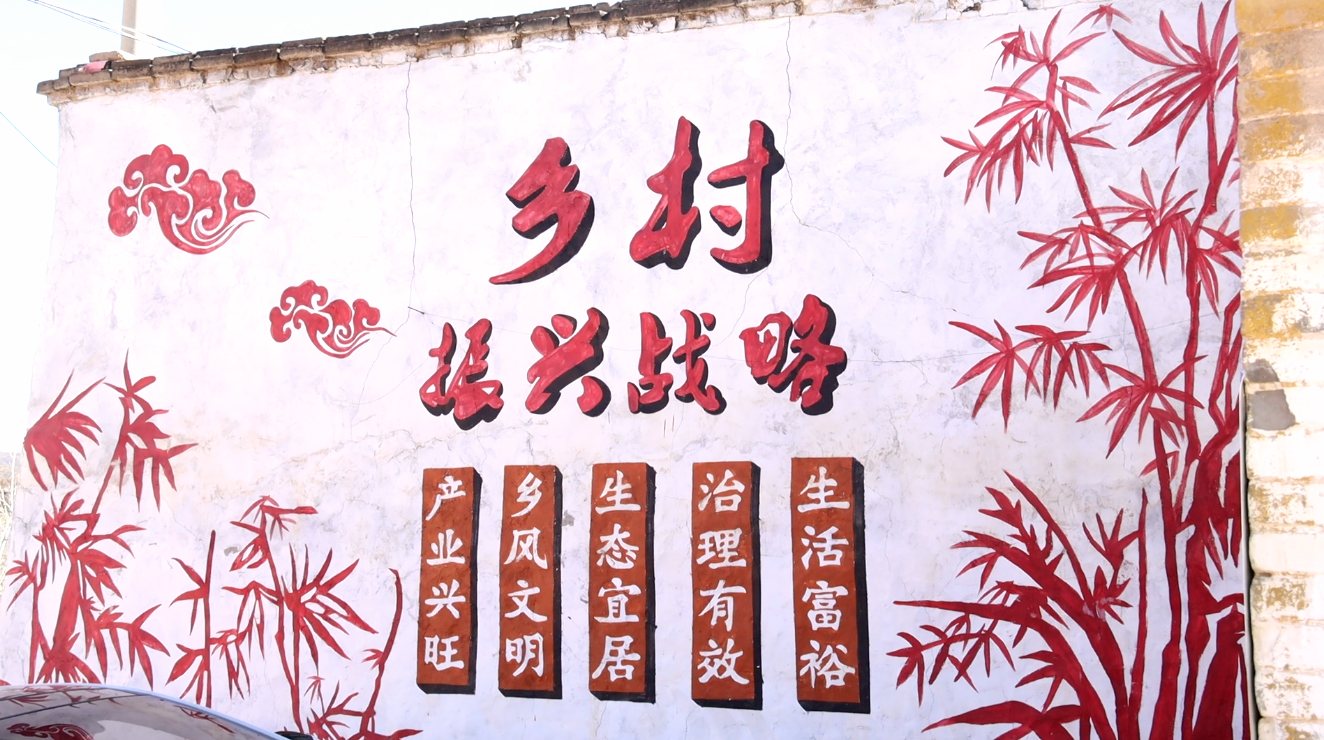 乡村
振兴战略
产业兴旺
乡风文明
生态宜居
治理有效
生活富裕